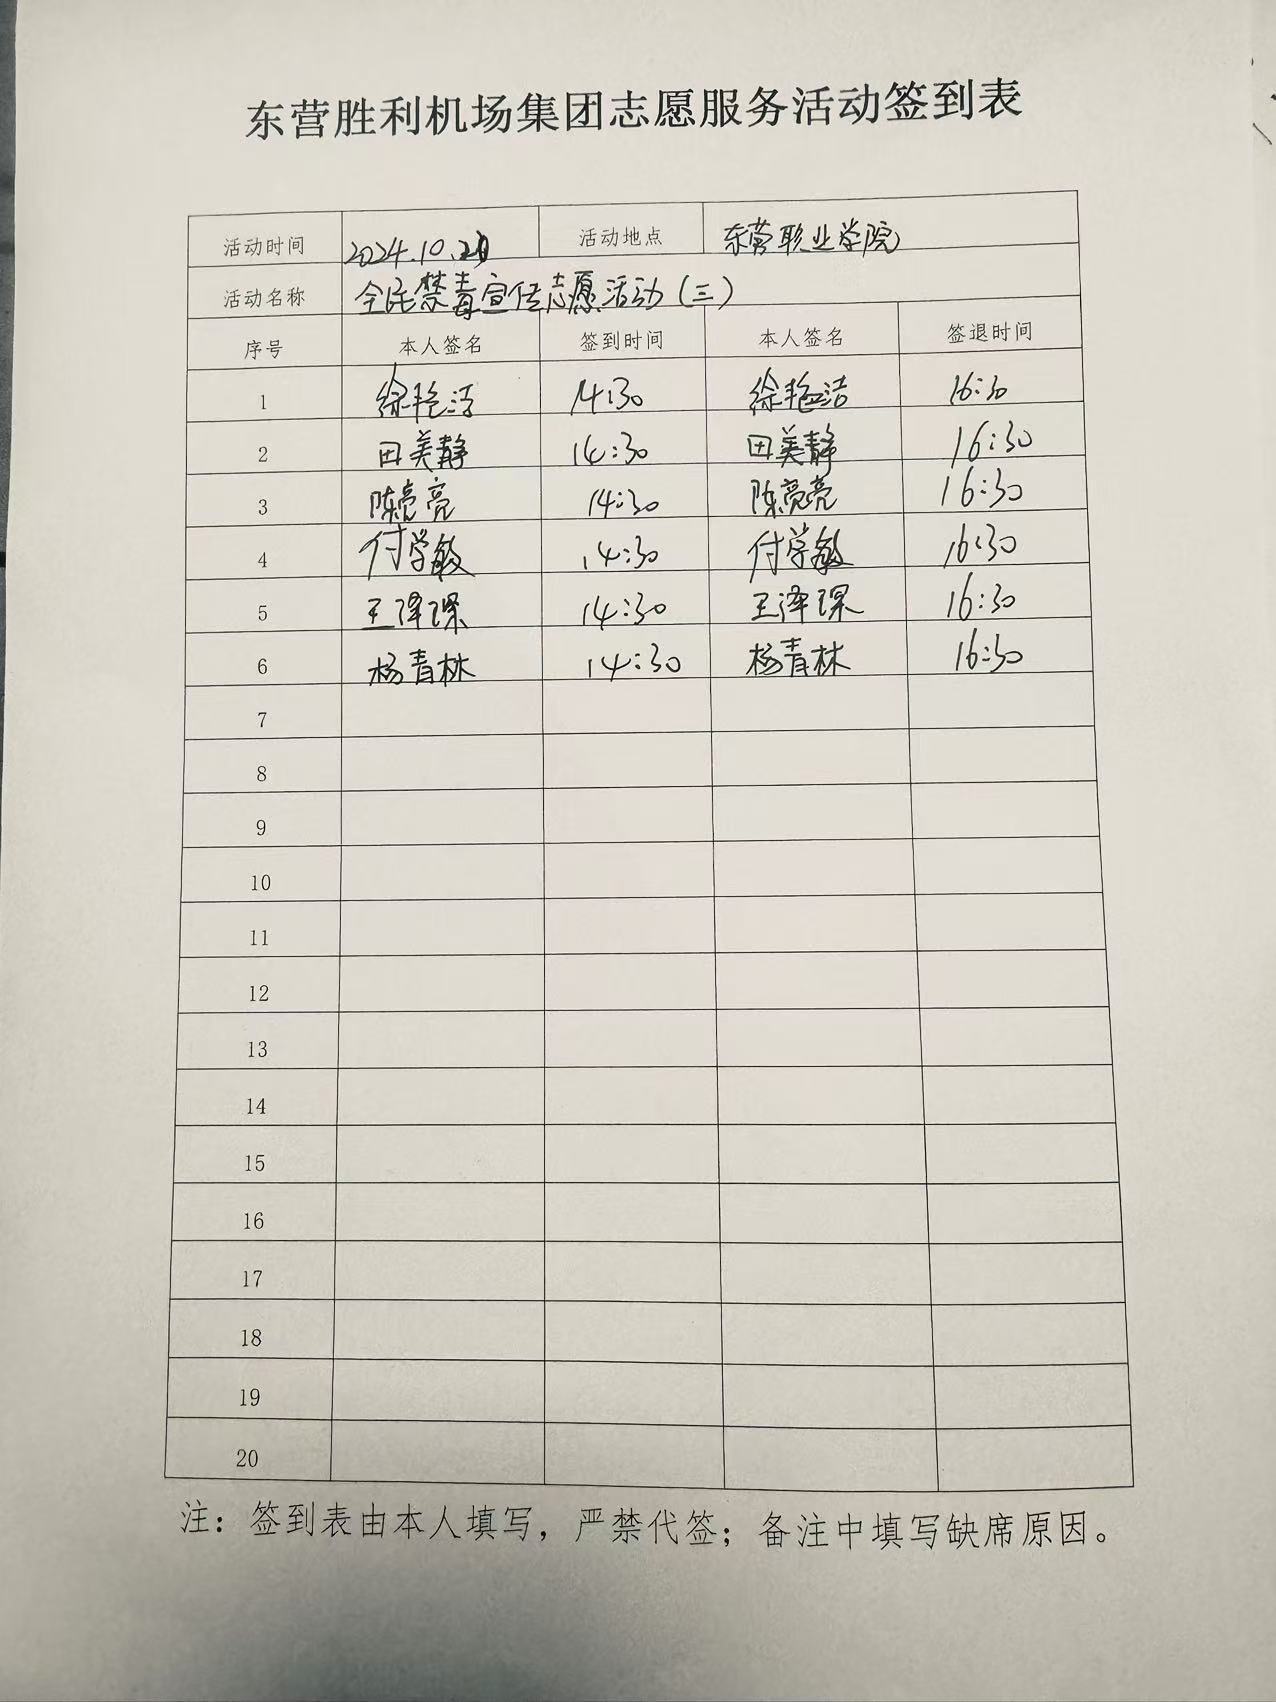 东营胜利机场集团志愿服务活动签到表
活动时间 2024.10. 活动地点 东营职业学院
活动名称 全民禁毒宣传志愿活动(三)
序号 本人签名 签到时间 本人签名 签退时间
1 徐艳洁 14:30 徐艳洁 16:30
2 田美静 14:30 田美静 16:30
3 陈亮亮 14:30 陈亮亮 16:30
4 付学敏 14:30 付学敏 16:30
5 王泽琛 14:30 王泽琛 16:30
6 杨青林 14:30 杨青林 16:30
7
8
9
10
11
12
13
14
15
16
17
18
19
20
注：签到表由本人填写，严禁代签；备注中填写缺席原因。